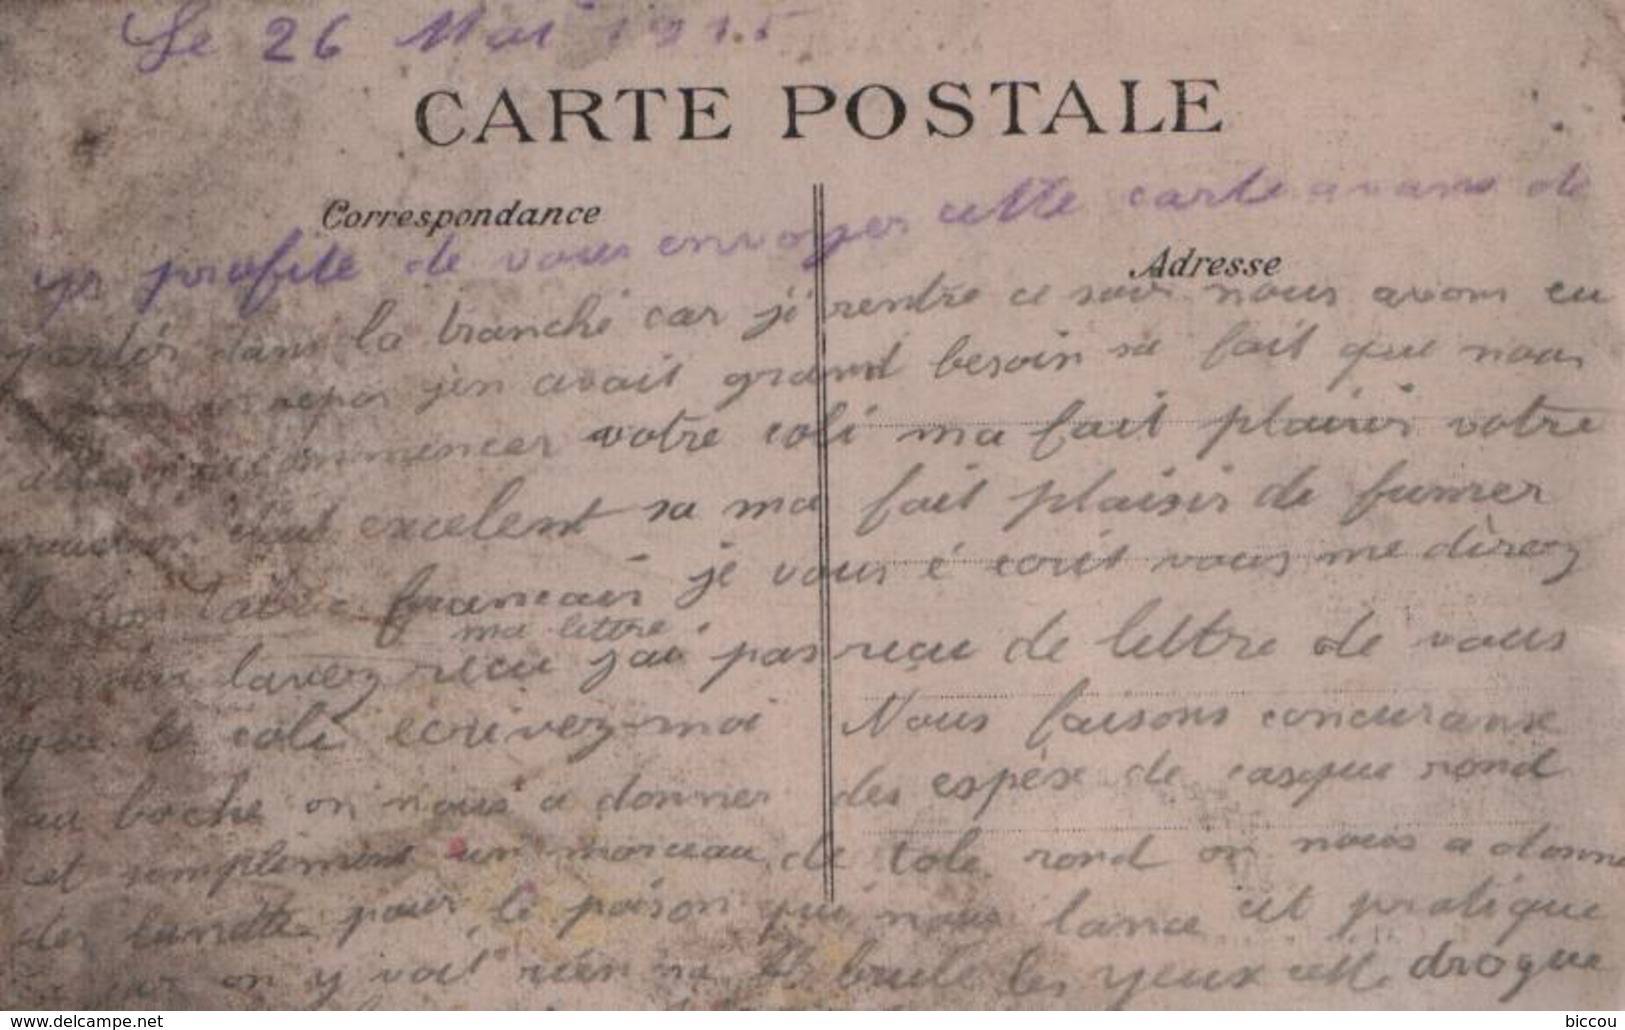 Le 26 Mai 1915
CARTE POSTALE
Correspondance
Adresse
je profite de vous envoyer cette carte avans de
partir dans la tranché car ji rentre ce soir nous avons eu
repos j'en avait grand besoin sa fait que nous
allons recommencer votre coli ma fait plaisir votre
était excelent sa ma fait plaisir de fumer
le bon tabac francais je vous é écrit vous me direz
si vous lavez recu ma lettre j'ai pas reçu de lettre de vous
que le coli ecrivez-moi Nous faisons concuranse
au boche on nous a donner des espèse de casque rond
cet simplement un morceau de tole rond on nous a donne
des lunette pour le poison qui nous lance cet pratique
car on y voit rien sa brule les yeux cette drogue
www.delcampe.net
biccou